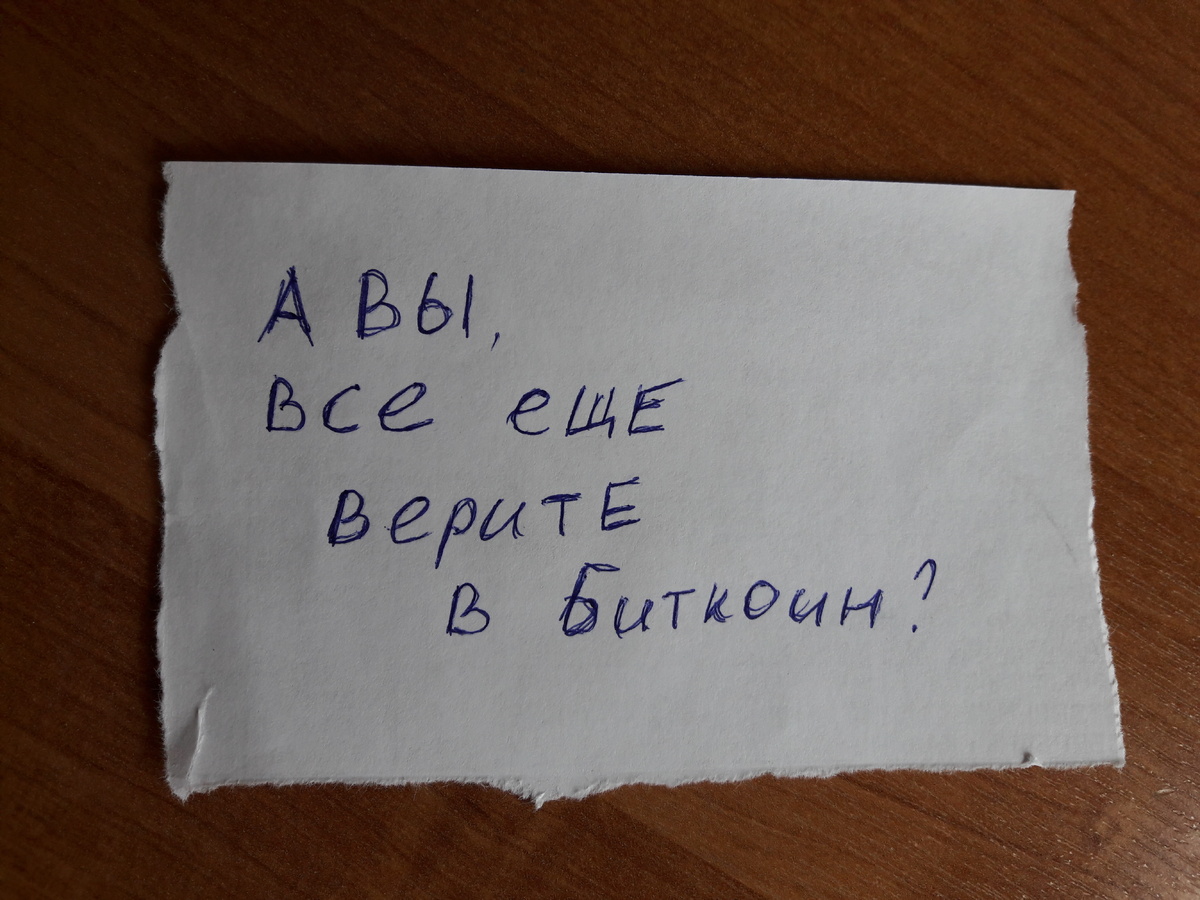 А ВЫ,
все еще
верите
в Биткоин?